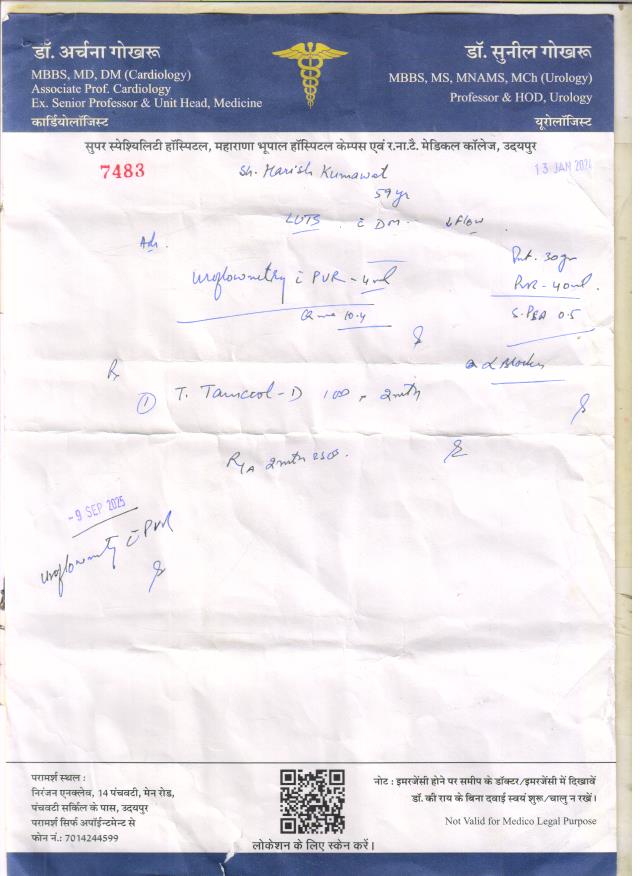 डॉ. अर्चना गोखरू
MBBS, MD, DM (Cardiology)
Associate Prof. Cardiology
Ex. Senior Professor & Unit Head, Medicine
कार्डियोलॉजिस्ट
डॉ. सुनील गोखरू
MBBS, MS, MNAMS, MCh (Urology)
Professor & HOD, Urology
यूरोलॉजिस्ट
सुपर स्पेशियलिटी हॉस्पिटल, महाराणा भूपाल हॉस्पिटल केम्पस एवं र.ना.टै. मेडिकल कॉलेज, उदयपुर
7483
Sh. Harish Kumawat
13 JAN
59 yr
LUTS c DM ↓ Flow
Adv.
Uroflowmetry c PVR - 4 ml
Q max 10.4
Prst. 30 gm
PVR - 40 ml.
S. PSA 0.5
α Blocker
Rx
① T. - D 100 x 2 mth
2 mth
- 9 SEP 2025
Uroflowmetry c PVR
परामर्श स्थल :
निरंजन एनक्लेव, 14 पंचवटी, मेन रोड,
पंचवटी सर्किल के पास, उदयपुर
परामर्श सिर्फ अपॉईन्टमेन्ट से
फोन नं.: 7014244599
लोकेशन के लिए स्केन करें।
नोट : इमरजेंसी होने पर समीप के डॉक्टर/इमरजेंसी में दिखावें
डॉ. की राय के बिना दवाई स्वयं शुरू/चालु न रखें।
Not Valid for Medico Legal Purpose